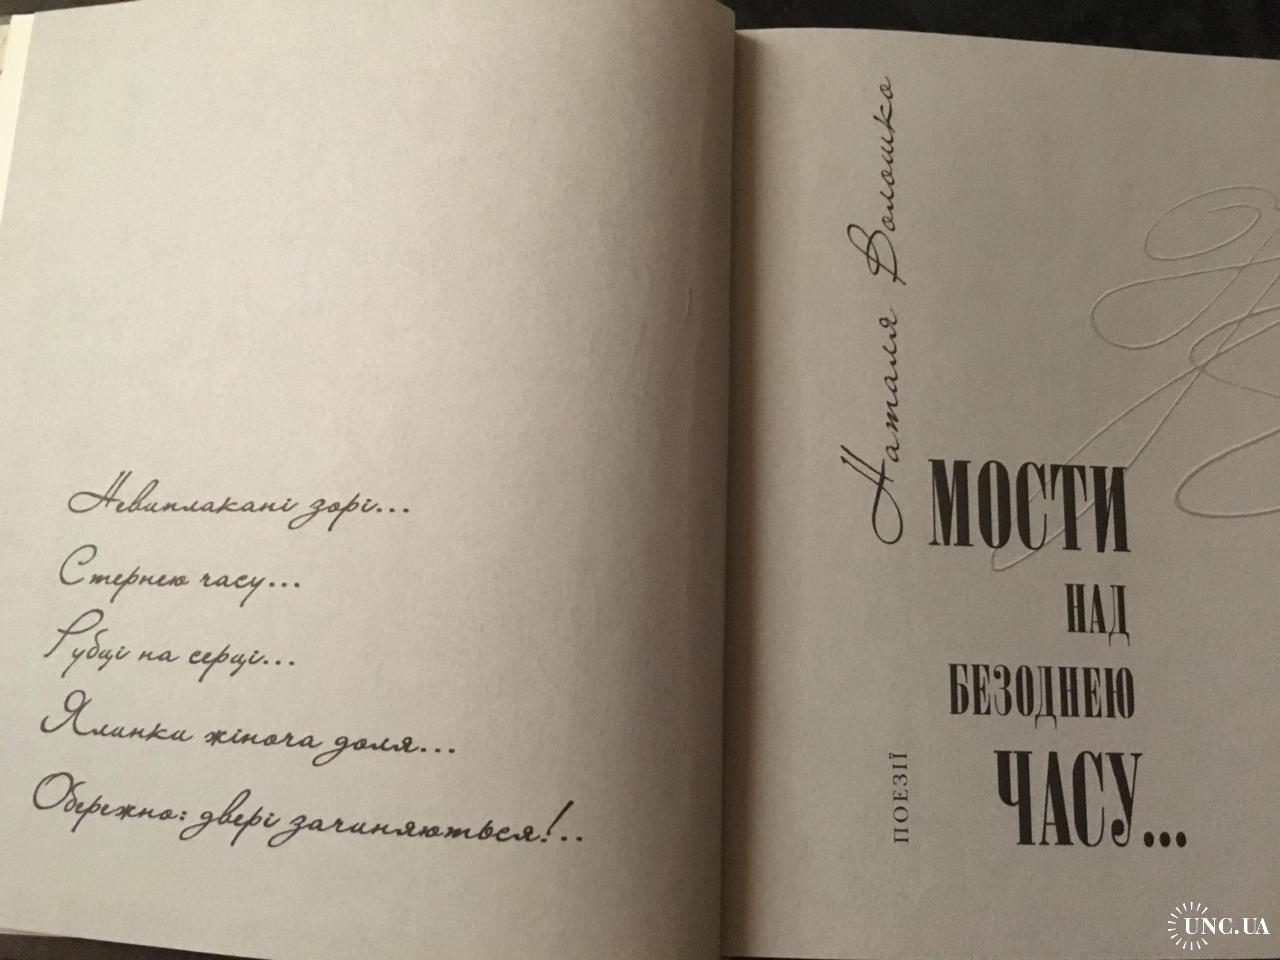 Невиплакані зорі...
Стернею часу...
Рубці на серці...
Ялинки жіноча доля...
Обережно: двері зачиняються!..
Наталя Волошко
МОСТИ
НАД
БЕЗОДНЕЮ
ЧАСУ...
ПОЕЗІЇ
UNC.UA